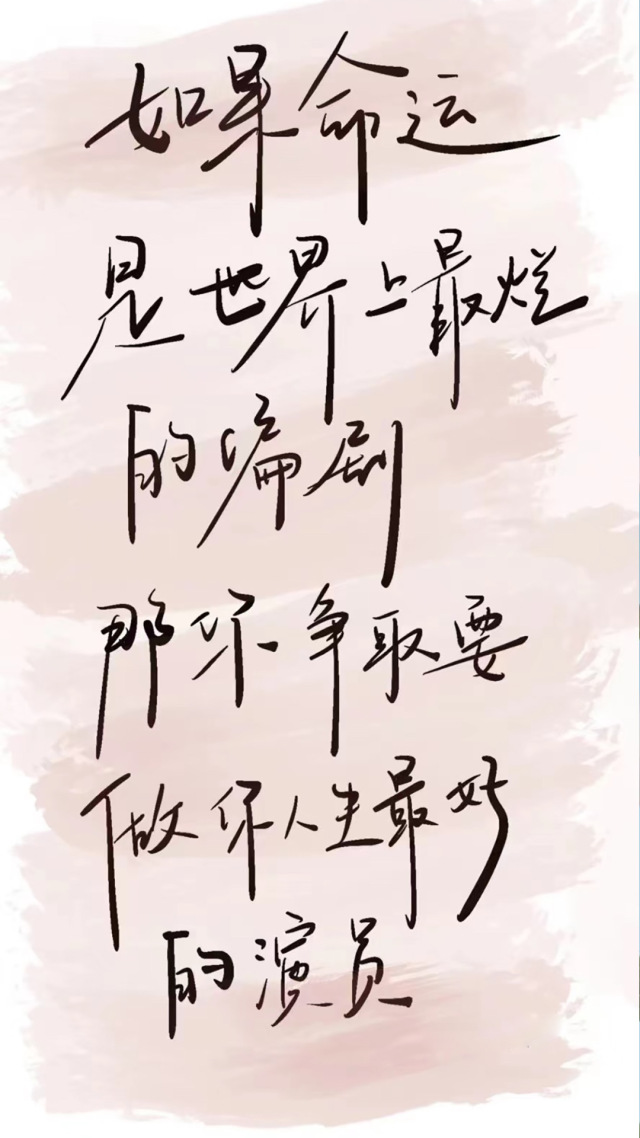 如果命运
是世界上最烂
的编剧
那你争取要
做你人生最好
的演员